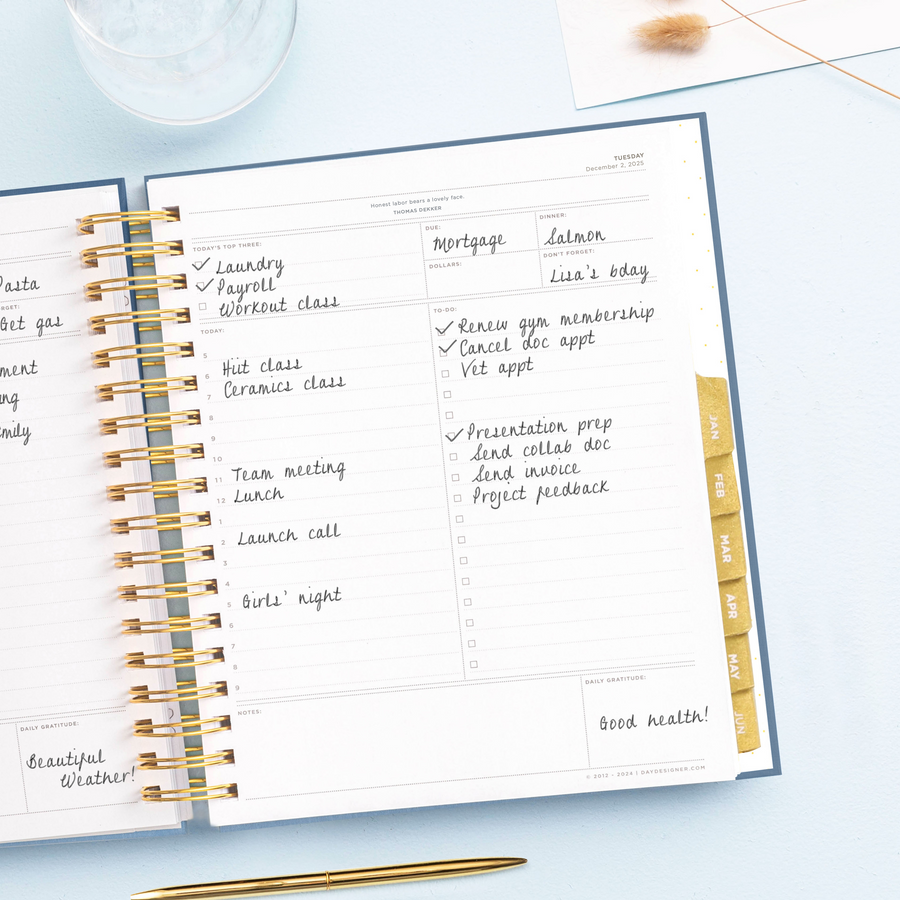 Pasta
Get gas
DAILY GRATITUDE:
Beautiful
Weather!
TUESDAY
December 2, 2025
Honest labor bears a lovely face.
THOMAS DEKKER
TODAY'S TOP THREE:
Laundry
Payroll
Workout class
DUE:
Mortgage
DOLLARS:
DINNER:
Salmon
DON'T FORGET:
Lisa's bday
TODAY:
5
6 Hiit class
7 Ceramics class
8
9
10
11 Team meeting
12 Lunch
1
2 Launch call
3
4
5 Girls' night
6
7
8
9
TO-DO:
Renew gym membership
Cancel doc appt
Vet appt
Presentation prep
Send collab doc
Send invoice
Project feedback
NOTES:
DAILY GRATITUDE:
Good health!
© 2012 - 2024 | DAYDESIGNER.COM
JAN
FEB
MAR
APR
MAY
JUN